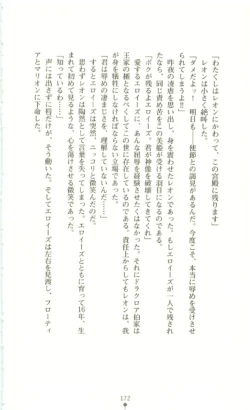 「わたくしはレオンにかわって、この宮殿に残ります」
レオンは小さく絶叫した。
「ダメだよっ！　明日も……使節との謁見があるんだ、今度こそ、本当に辱めを受けさせ
られてしまうよ!!」
昨夜の凌虐を思い出し、身を震わせたレオンであった。もしエロイーズが一人で残され
たなら、同じ責め苦をこの美姫が経験する羽目になるのである。
「ボクが残るよエロイーズ、君が神像を破壊してきてくれ」
愛するエロイーズに、あんな屈辱を経験させたくはなかった。それにドラクロア伯家は
王家の楯となるべくしてこの世に存在しているのである。責任上からしてもレオンは、我が
身を犠牲にしなければならない立場であった。
「君は辱めの凄まじさを、理解していないんだ――」
するとエロイーズは、ニッコリと微笑んだのだ。
思わずレオンは陶然として言葉を失ってしまった。エロイーズとともに育って16年、生
まれて初めて見るような、心を蕩けさせる笑みであった。
「知っているわ……」
声には出さずに唇だけが、そう動いた。そしてエロイーズは左右を見渡し、フローティ
アとマリオンに下命した。
172